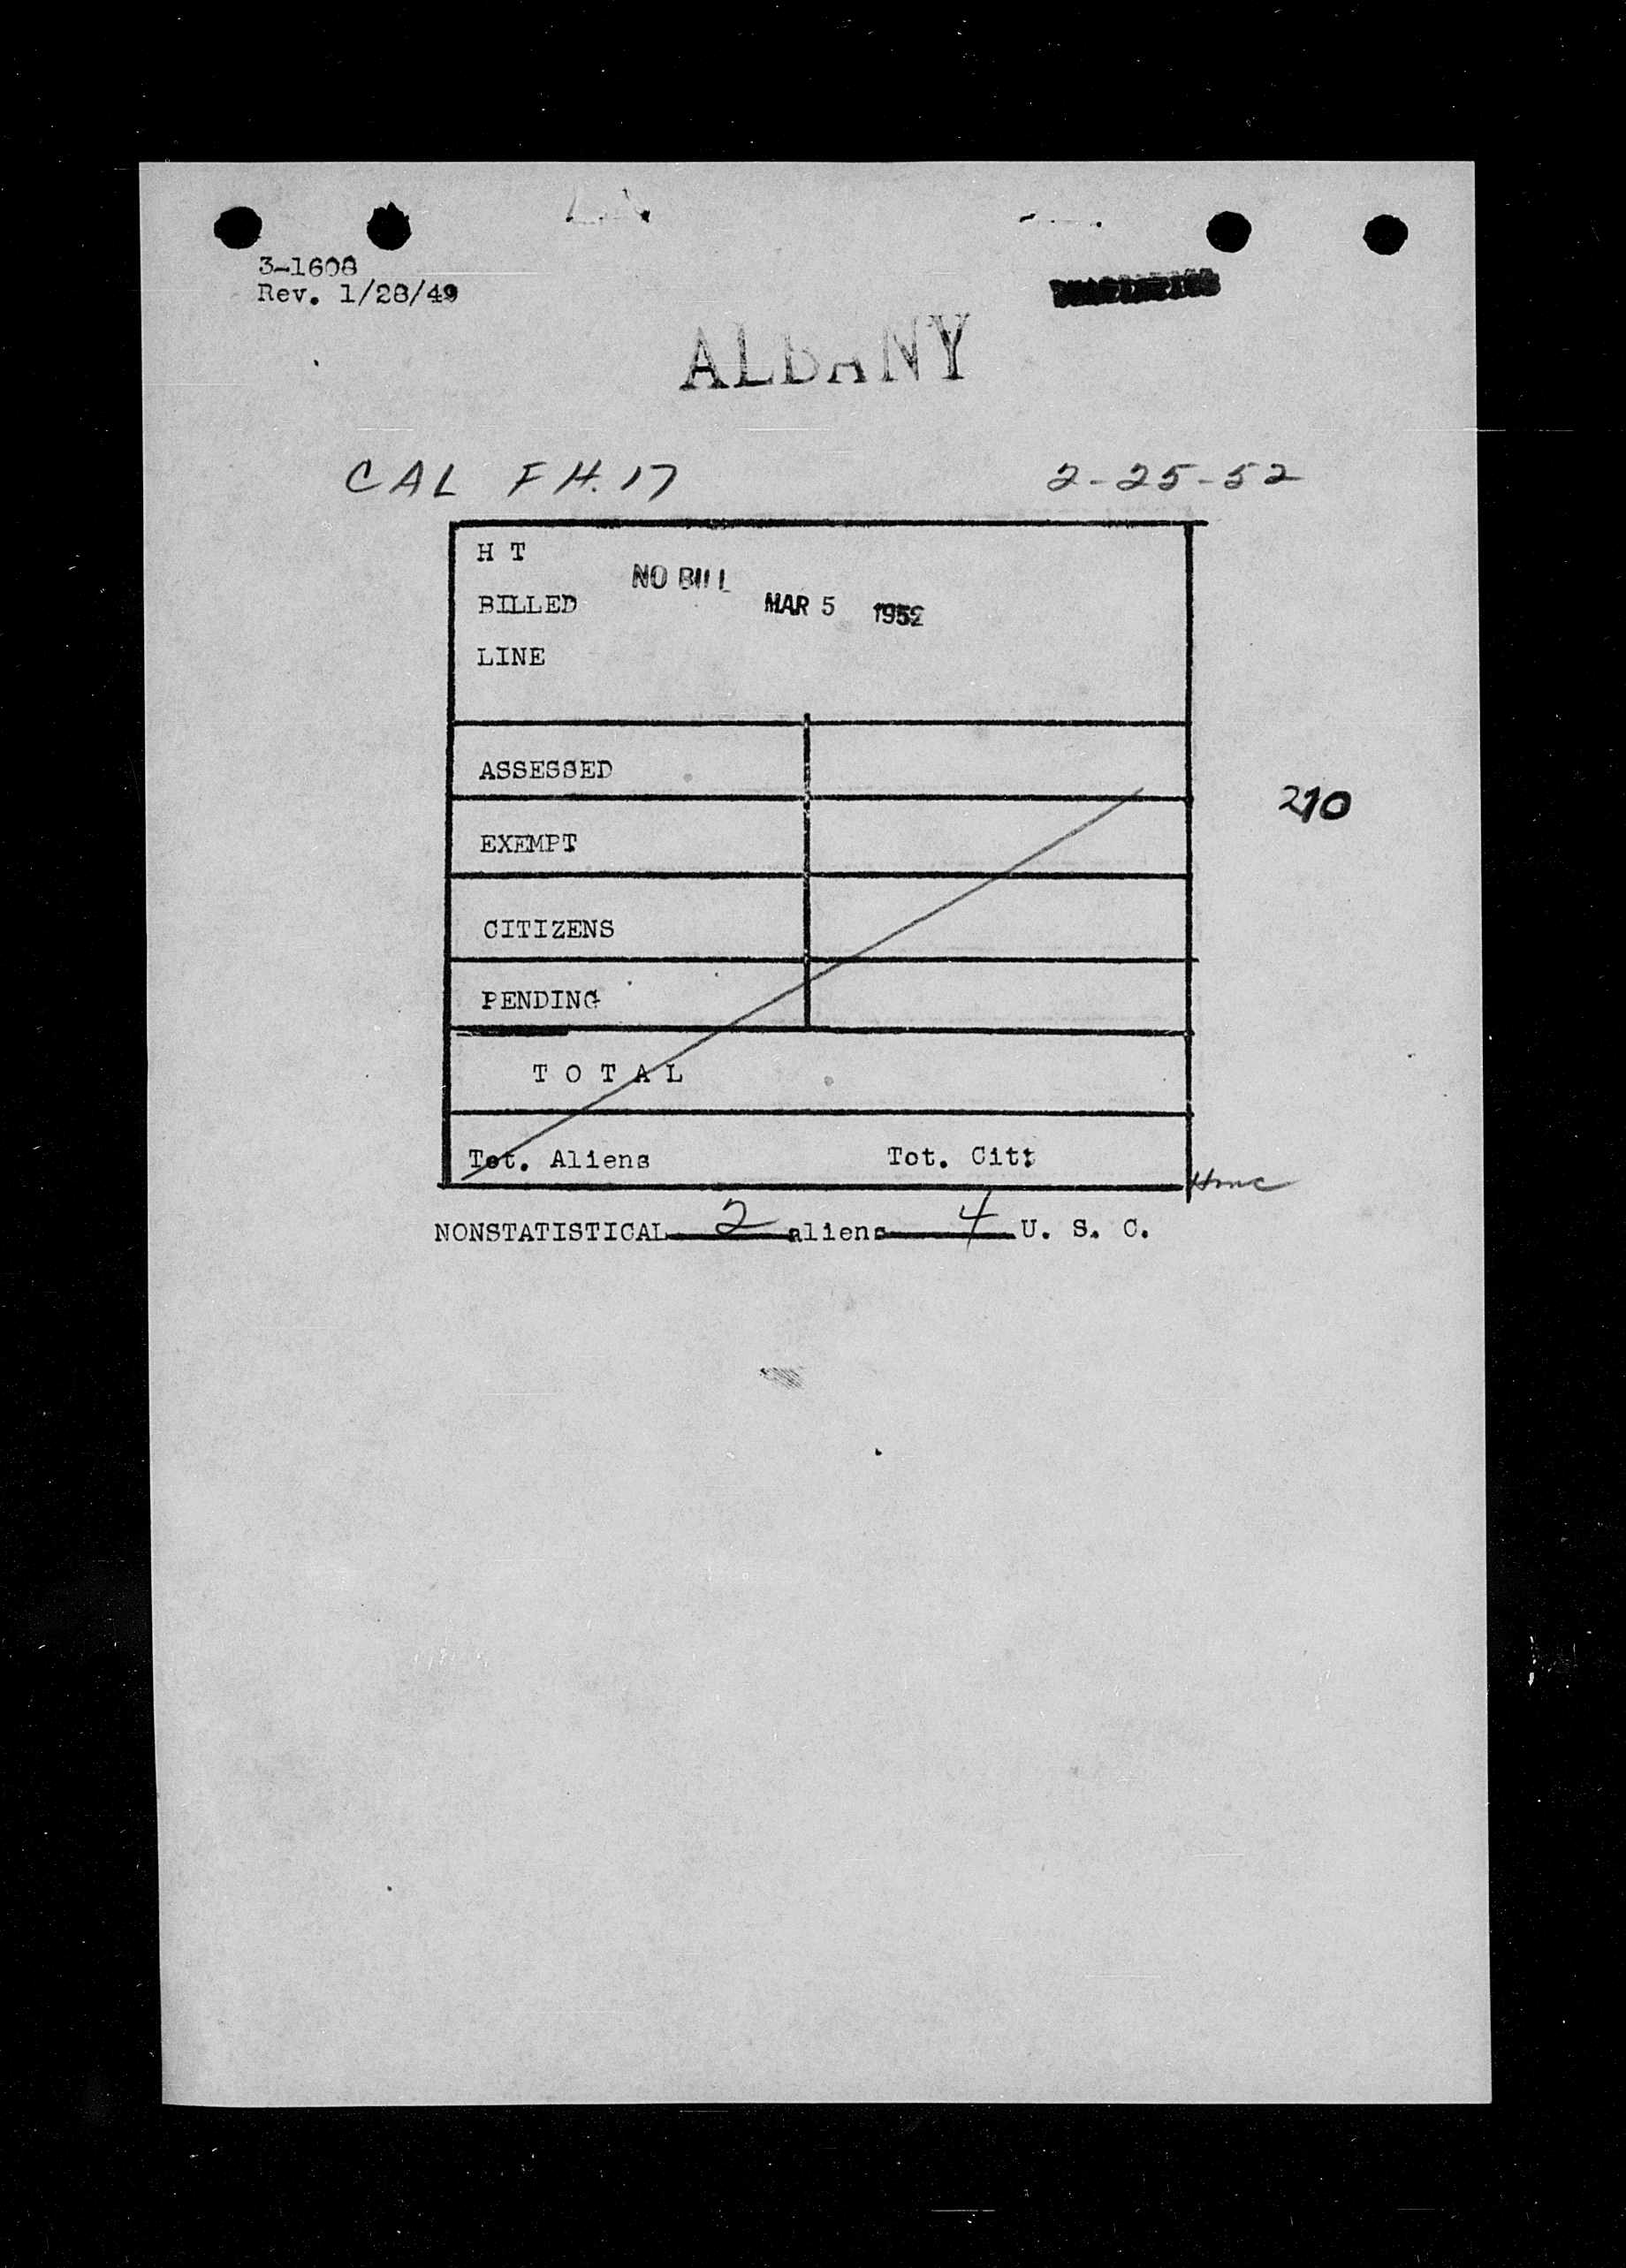 3-1608
Rev. 1/28/49
ALBANY
CAL F H. 17 2-25-52
H T
NO BILL
BILLED MAR 5 1952
LINE
ASSESSED
210
EXEMPT
CITIZENS
PENDING
T O T A L
Tot. Aliens Tot. Citz
Hmc
NONSTATISTICAL 2 aliens 4 U. S. C.